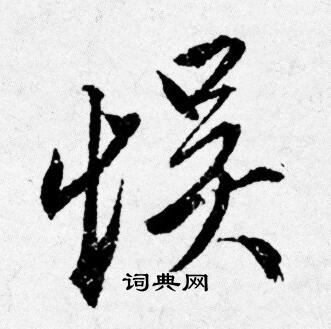 悮
词典网